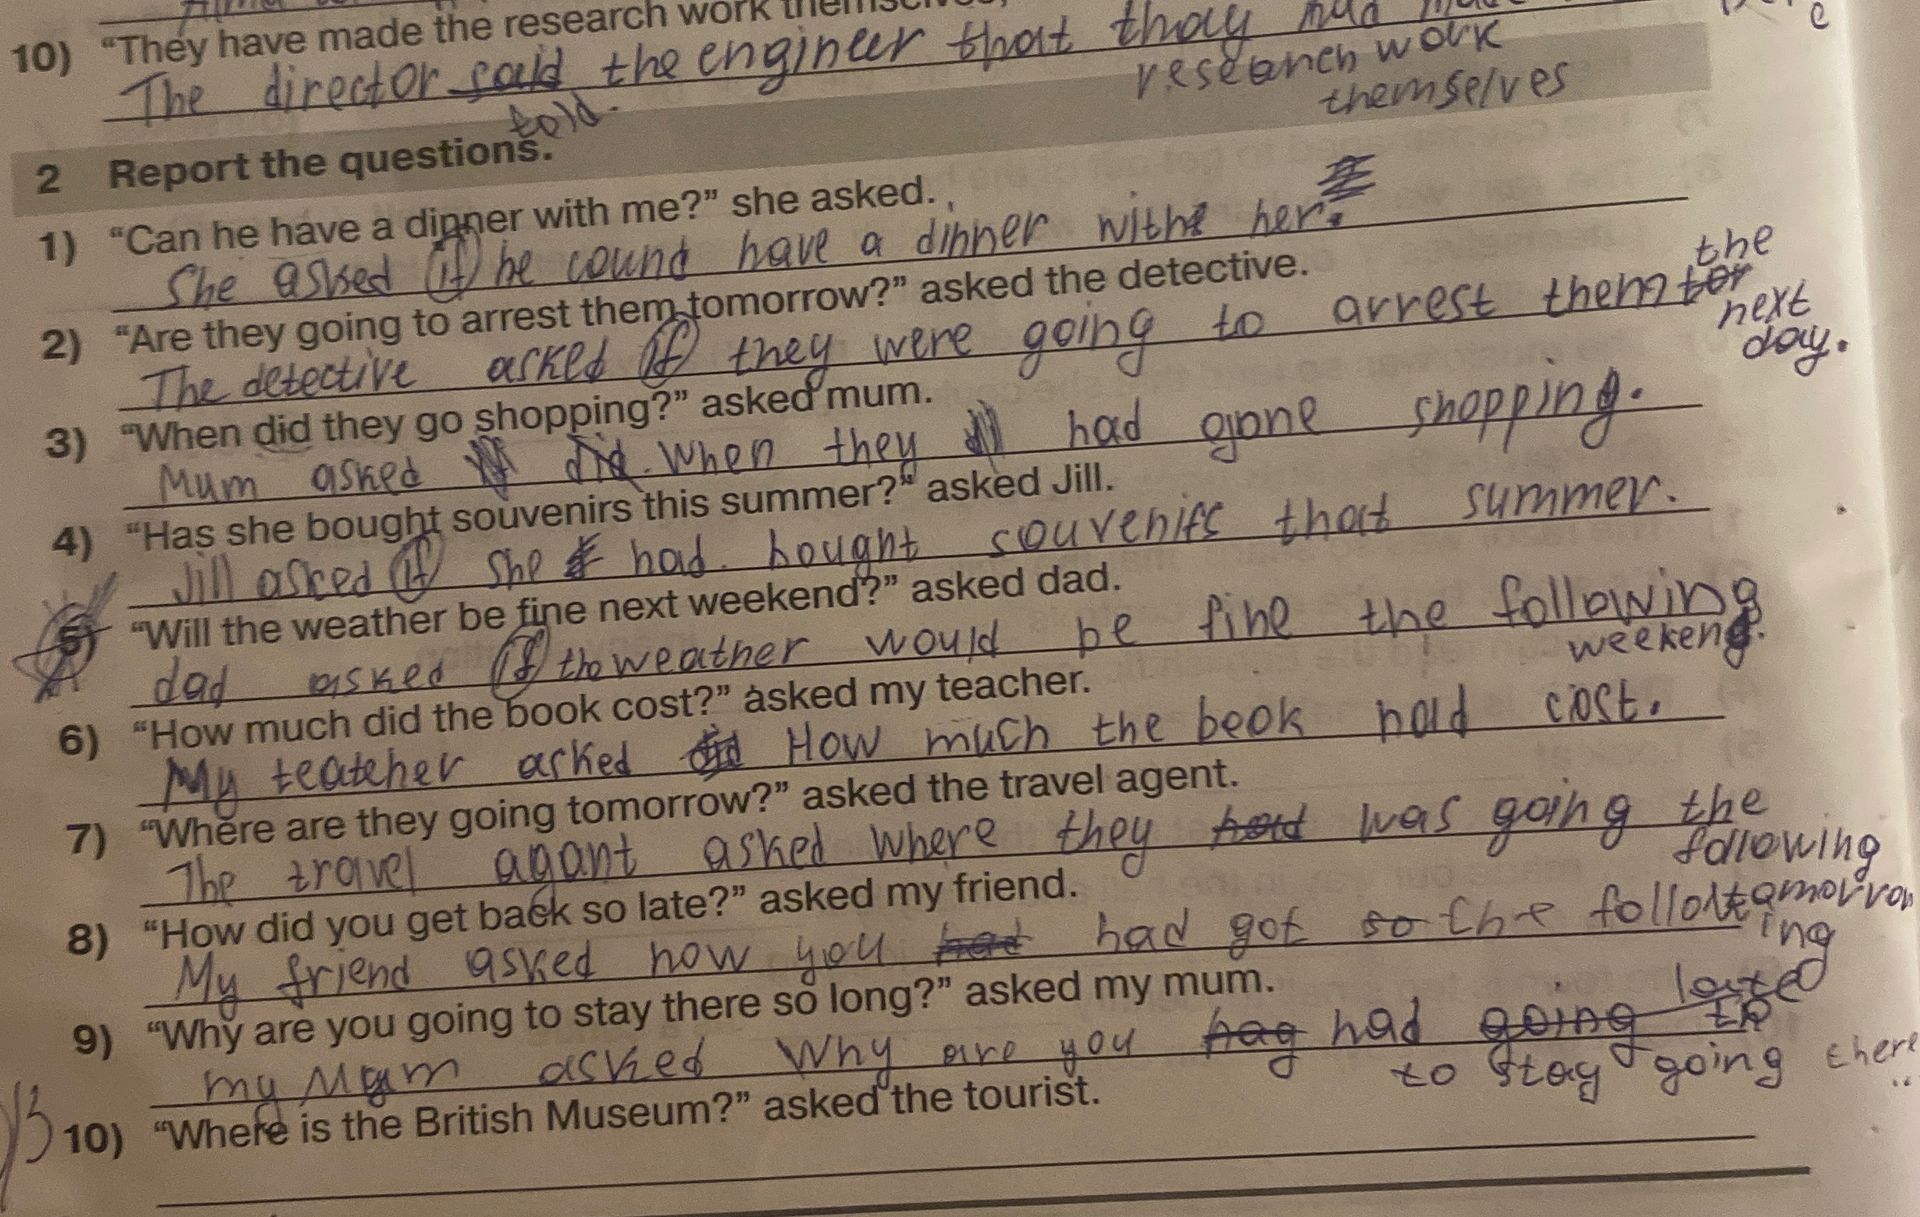 10) "They have made the research work themselves,
The director said the engineer that thay had
research work
themselves
told.
2 Report the questions.
1) "Can he have a dinner with me?" she asked.
She asked if he cound have a dinner with her.
2) "Are they going to arrest them tomorrow?" asked the detective.
The detective asked if they were going to arrest them tor the
next
day.
3) "When did they go shopping?" asked mum.
Mum asked did. When they had gone shopping.
4) "Has she bought souvenirs this summer?" asked Jill.
Jill asked if she had bought souvenirs that summer.
5) "Will the weather be fine next weekend?" asked dad.
dad asked if the weather would be fine the following
weekend.
6) "How much did the book cost?" asked my teacher.
My teatcher asked did How much the book had cost.
7) "Where are they going tomorrow?" asked the travel agent.
The travel agant asked where they had was going the
following
tamorrow
8) "How did you get back so late?" asked my friend.
My friend asked how you had had got so the follow
ing
late
9) "Why are you going to stay there so long?" asked my mum.
my Mum asked Why are you hag had going to
to stay going there
10) "Where is the British Museum?" asked the tourist.